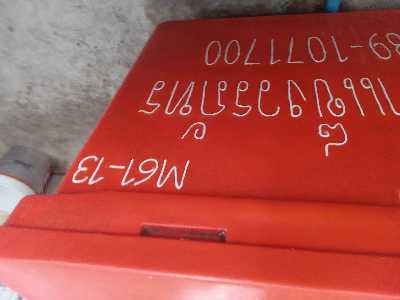 M61-13
าแข็งวรภัทร
89-1071700